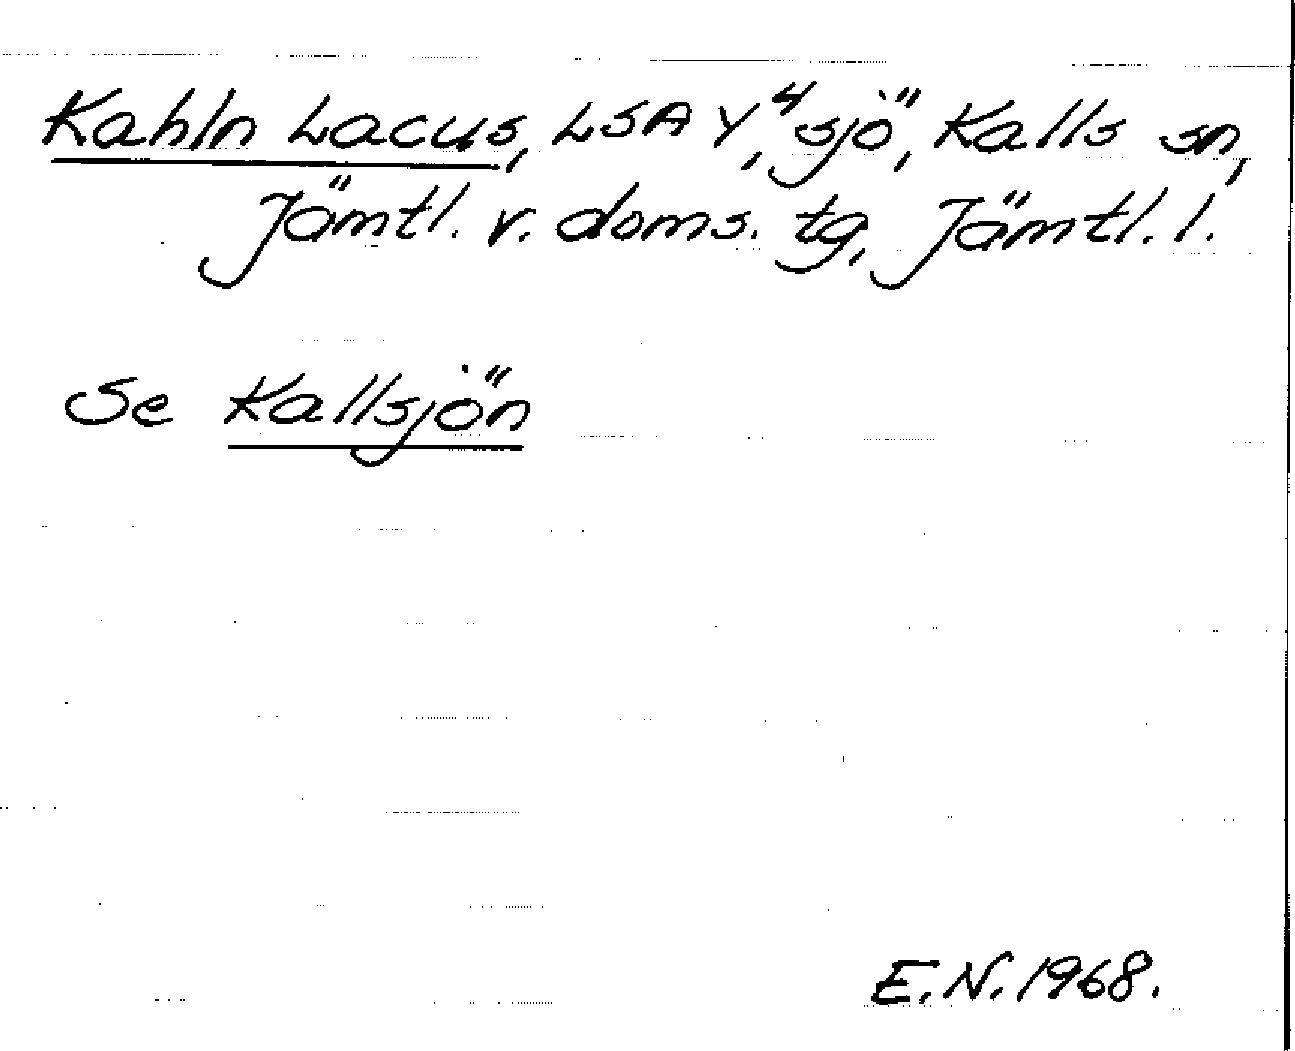 Kahln Lacus, LSA Y⁴, sjö, Kalls sn,
Jämtl. v. doms. tg, Jämtl. l.
Se Kallsjön
E.N. 1968.